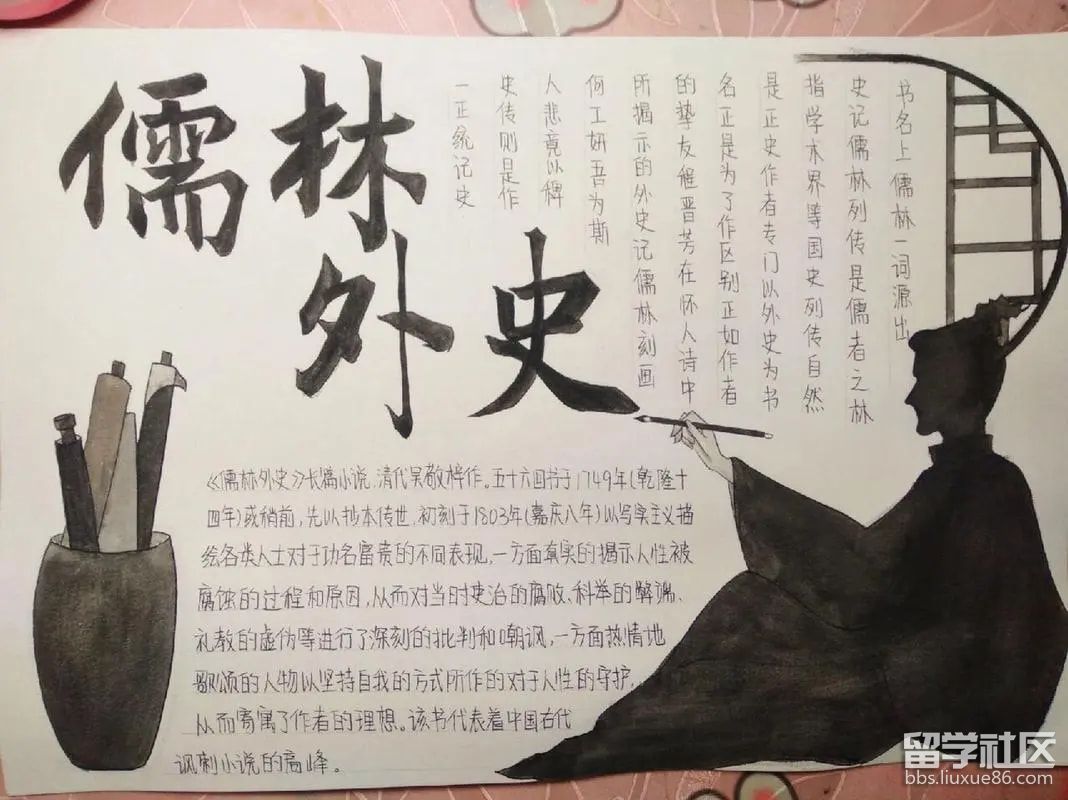 儒林
外史
书名上儒林一词源出
史记儒林列传是儒者之林
指学术界等国史列传自然
是正史作者专门以外史为书
名正是为了作区别正如作者
的挚友程晋芳在怀人诗中
所揭示的外史记儒林刻画
何工妍吾为斯
人悲竟以稗
史传则是作
一正统记史
《儒林外史》长篇小说,清代吴敬梓作。五十六回书于1749年(乾隆十
四年)或稍前,先以抄本传世,初刻于1803年(嘉庆八年)以写实主义描
绘各类人士对于功名富贵的不同表现,一方面真实的揭示人性被
腐蚀的过程和原因,从而对当时吏治的腐败、科举的弊端、
礼教的虚伪等进行了深刻的批判和嘲讽,一方面热情地
歌颂的人物以坚持自我的方式所作的对于人性的守护,
从而寄寓了作者的理想。该书代表着中国古代
讽刺小说的高峰。
留学社区
bbs.liuxue86.com